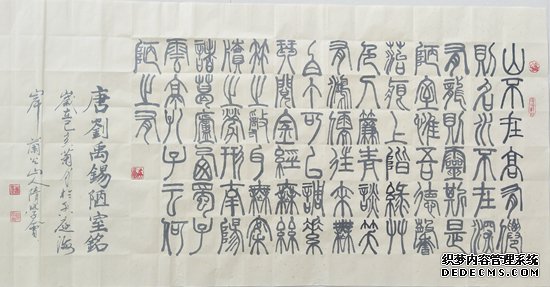 山不在高有僊
則名水不在深
有龍則靈斯是
陋室惟吾德馨
苔痕上階綠艸
色入簾青談笑
有鴻儒往來無
白丁可以調素
琴閱金經無絲
竹之亂耳無案
牘之勞形南陽
諸葛廬西蜀子
雲亭孔子云何
陋之有
唐劉禹錫陋室銘
歲在己亥菊月於海
岸山人書
织梦内容管理系统
DEDECMS.COM